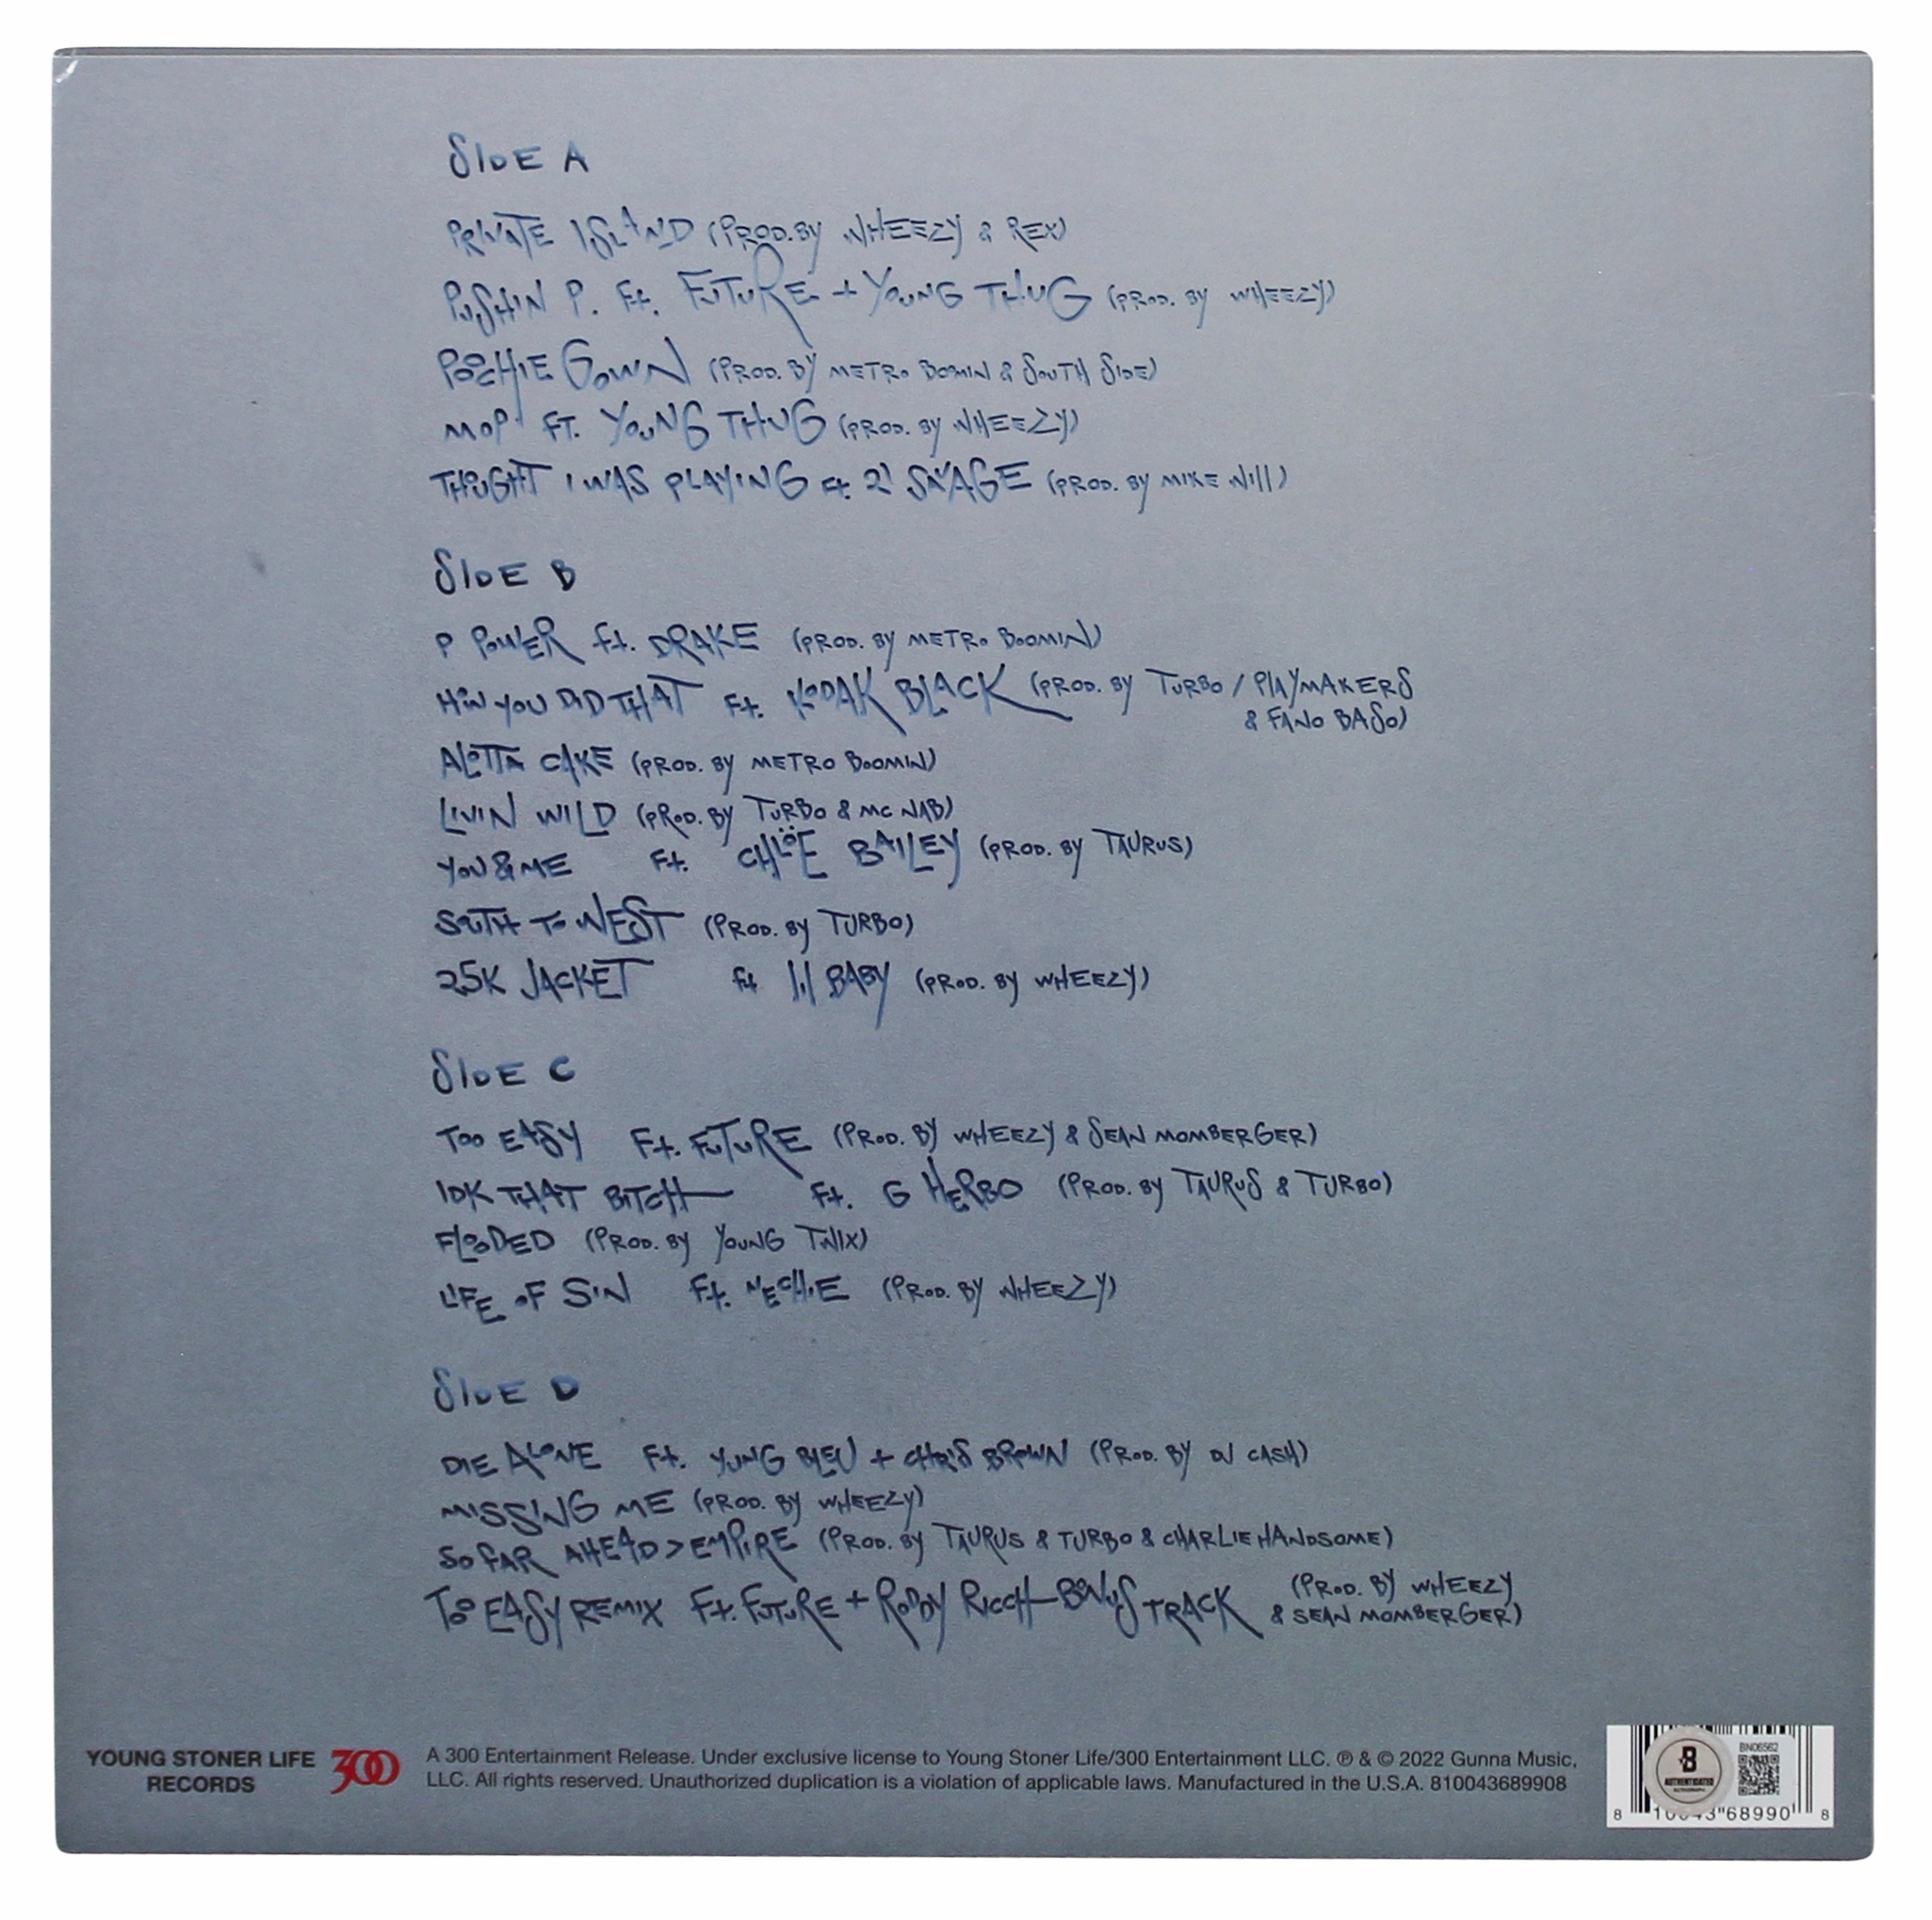 SIDE A
PRIVATE ISLAND (PROD. BY WHEEZY & REX)
PUSHIN P. Ft. FUTURE + YOUNG THUG (PROD. BY WHEEZY)
POOCHIE GOWN (PROD. BY METRO BOMIN & SOUTH SIDE)
MOP FT. YOUNG THUG (PROD. BY WHEEZY)
THOUGHT I WAS PLAYING Ft. 21 SAVAGE (PROD. BY MIKE Will)
SIDE B
P POWER ft. DRAKE (PROD. BY METRO BOOMIN)
HOW YOU DID THAT Ft. KODAK BLACK (PROD. BY TURBO / PlAYMAKERS
& FANO BASO)
ALOTTA CAKE (PROD. BY METRO BOOMIN)
LIVIN WILD (PROD. BY TURBO & MC NAB)
YOU & ME Ft. CHLÖE BAILEY (PROD. BY TAURUS)
SOUTH TO WEST (PROD. BY TURBO)
25K JACKET ft lil BABY (PROD. BY WHEEZY)
SIDE C
TOO EASY Ft. FUTURE (PROD. BY WHEEZY & SEAN MOMBERGER)
IDK THAT BITCH Ft. G HERBO (PROD. BY TAURUS & TURBO)
FLOODED (PROD. BY YOUNG TWIX)
LIFE OF SIN Ft. NECHIE (PROD. BY WHEEZY)
SIDE D
DIE ALONE Ft. YUNG BLEU + CHRIS BROWN (PROD. BY DJ CASH)
MISSING ME (PROD. BY WHEEZY)
SO FAR AHEAD > EMPIRE (PROD. BY TAURUS & TURBO & CHARLIE HANDSOME)
TOO EASY REMIX Ft. FUTURE + RODDY RICCH - BONUS TRACK (PROD. BY WHEEZY
& SEAN MOMBERGER)
YOUNG STONER LIFE
RECORDS
300
A 300 Entertainment Release. Under exclusive license to Young Stoner Life/300 Entertainment LLC. ℗ & © 2022 Gunna Music,
LLC. All rights reserved. Unauthorized duplication is a violation of applicable laws. Manufactured in the U.S.A. 810043689908
BN06562
B
AUTHENTICATED
8 10043"68990 8